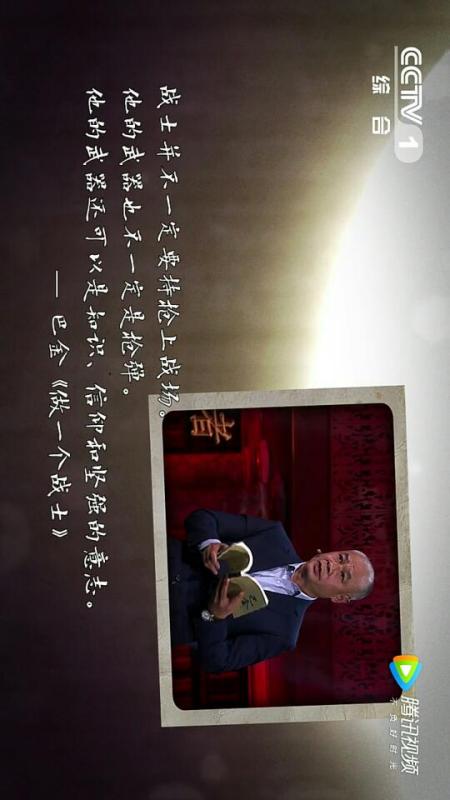 CCTV 1
综合
战士并不一定要持枪上战场。
他的武器也不一定是枪弹。
他的武器还可以是知识、信仰和坚强的意志。
— 巴金《做一个战士》
者
腾讯视频
不负好时光